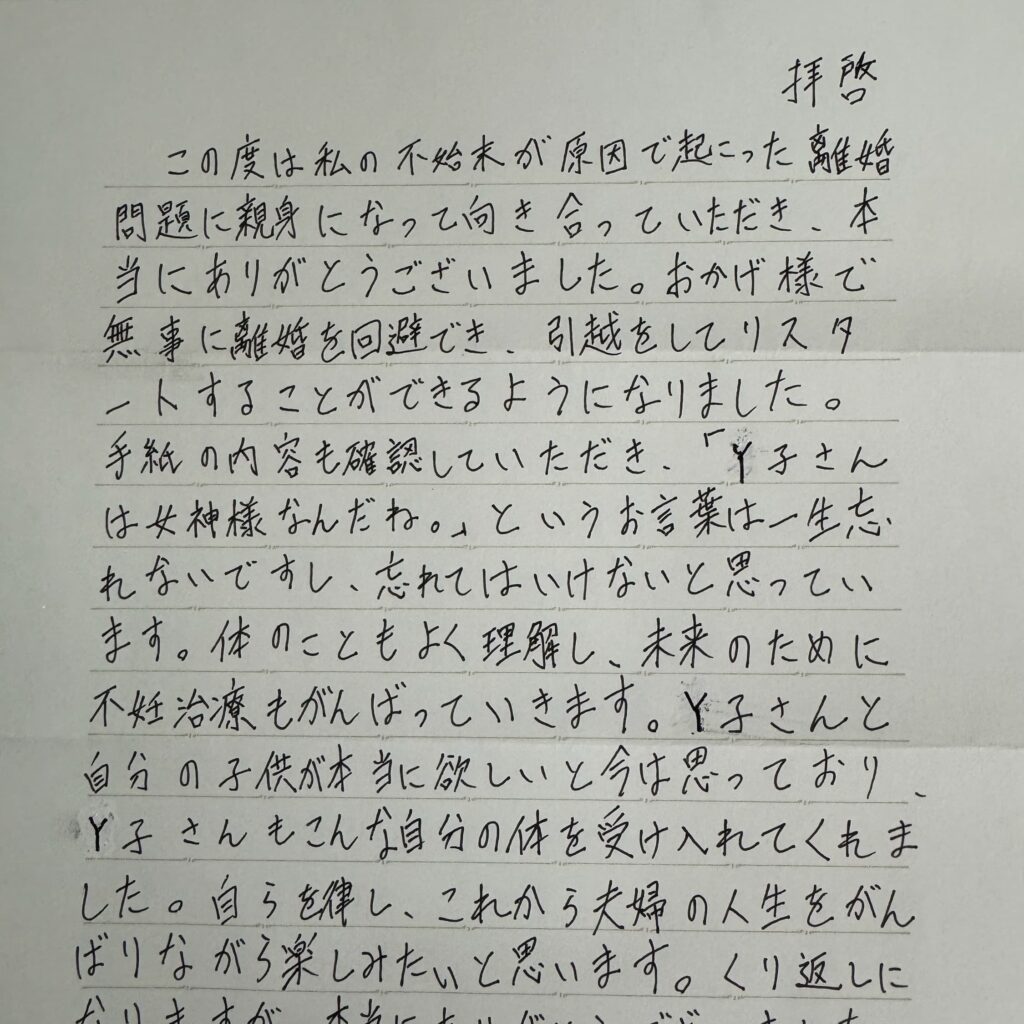 拝啓
この度は私の不始末が原因で起こった離婚
問題に親身になって向き合っていただき、本
当にありがとうございました。おかげ様で
無事に離婚を回避でき、引越をしてリスタ
ートすることができるようになりました。
手紙の内容も確認していただき、「Y子さん
は女神様なんだね。」というお言葉は一生忘
れないですし、忘れてはいけないと思ってい
ます。体のこともよく理解し、未来のために
不妊治療もがんばっていきます。Y子さんと
自分の子供が本当に欲しいと今は思っており、
Y子さんもこんな自分の体を受け入れてくれま
した。自らを律し、これから夫婦の人生をがん
ばりながら楽しみたいと思います。くり返しに
なりますが、本当にありがとうございました